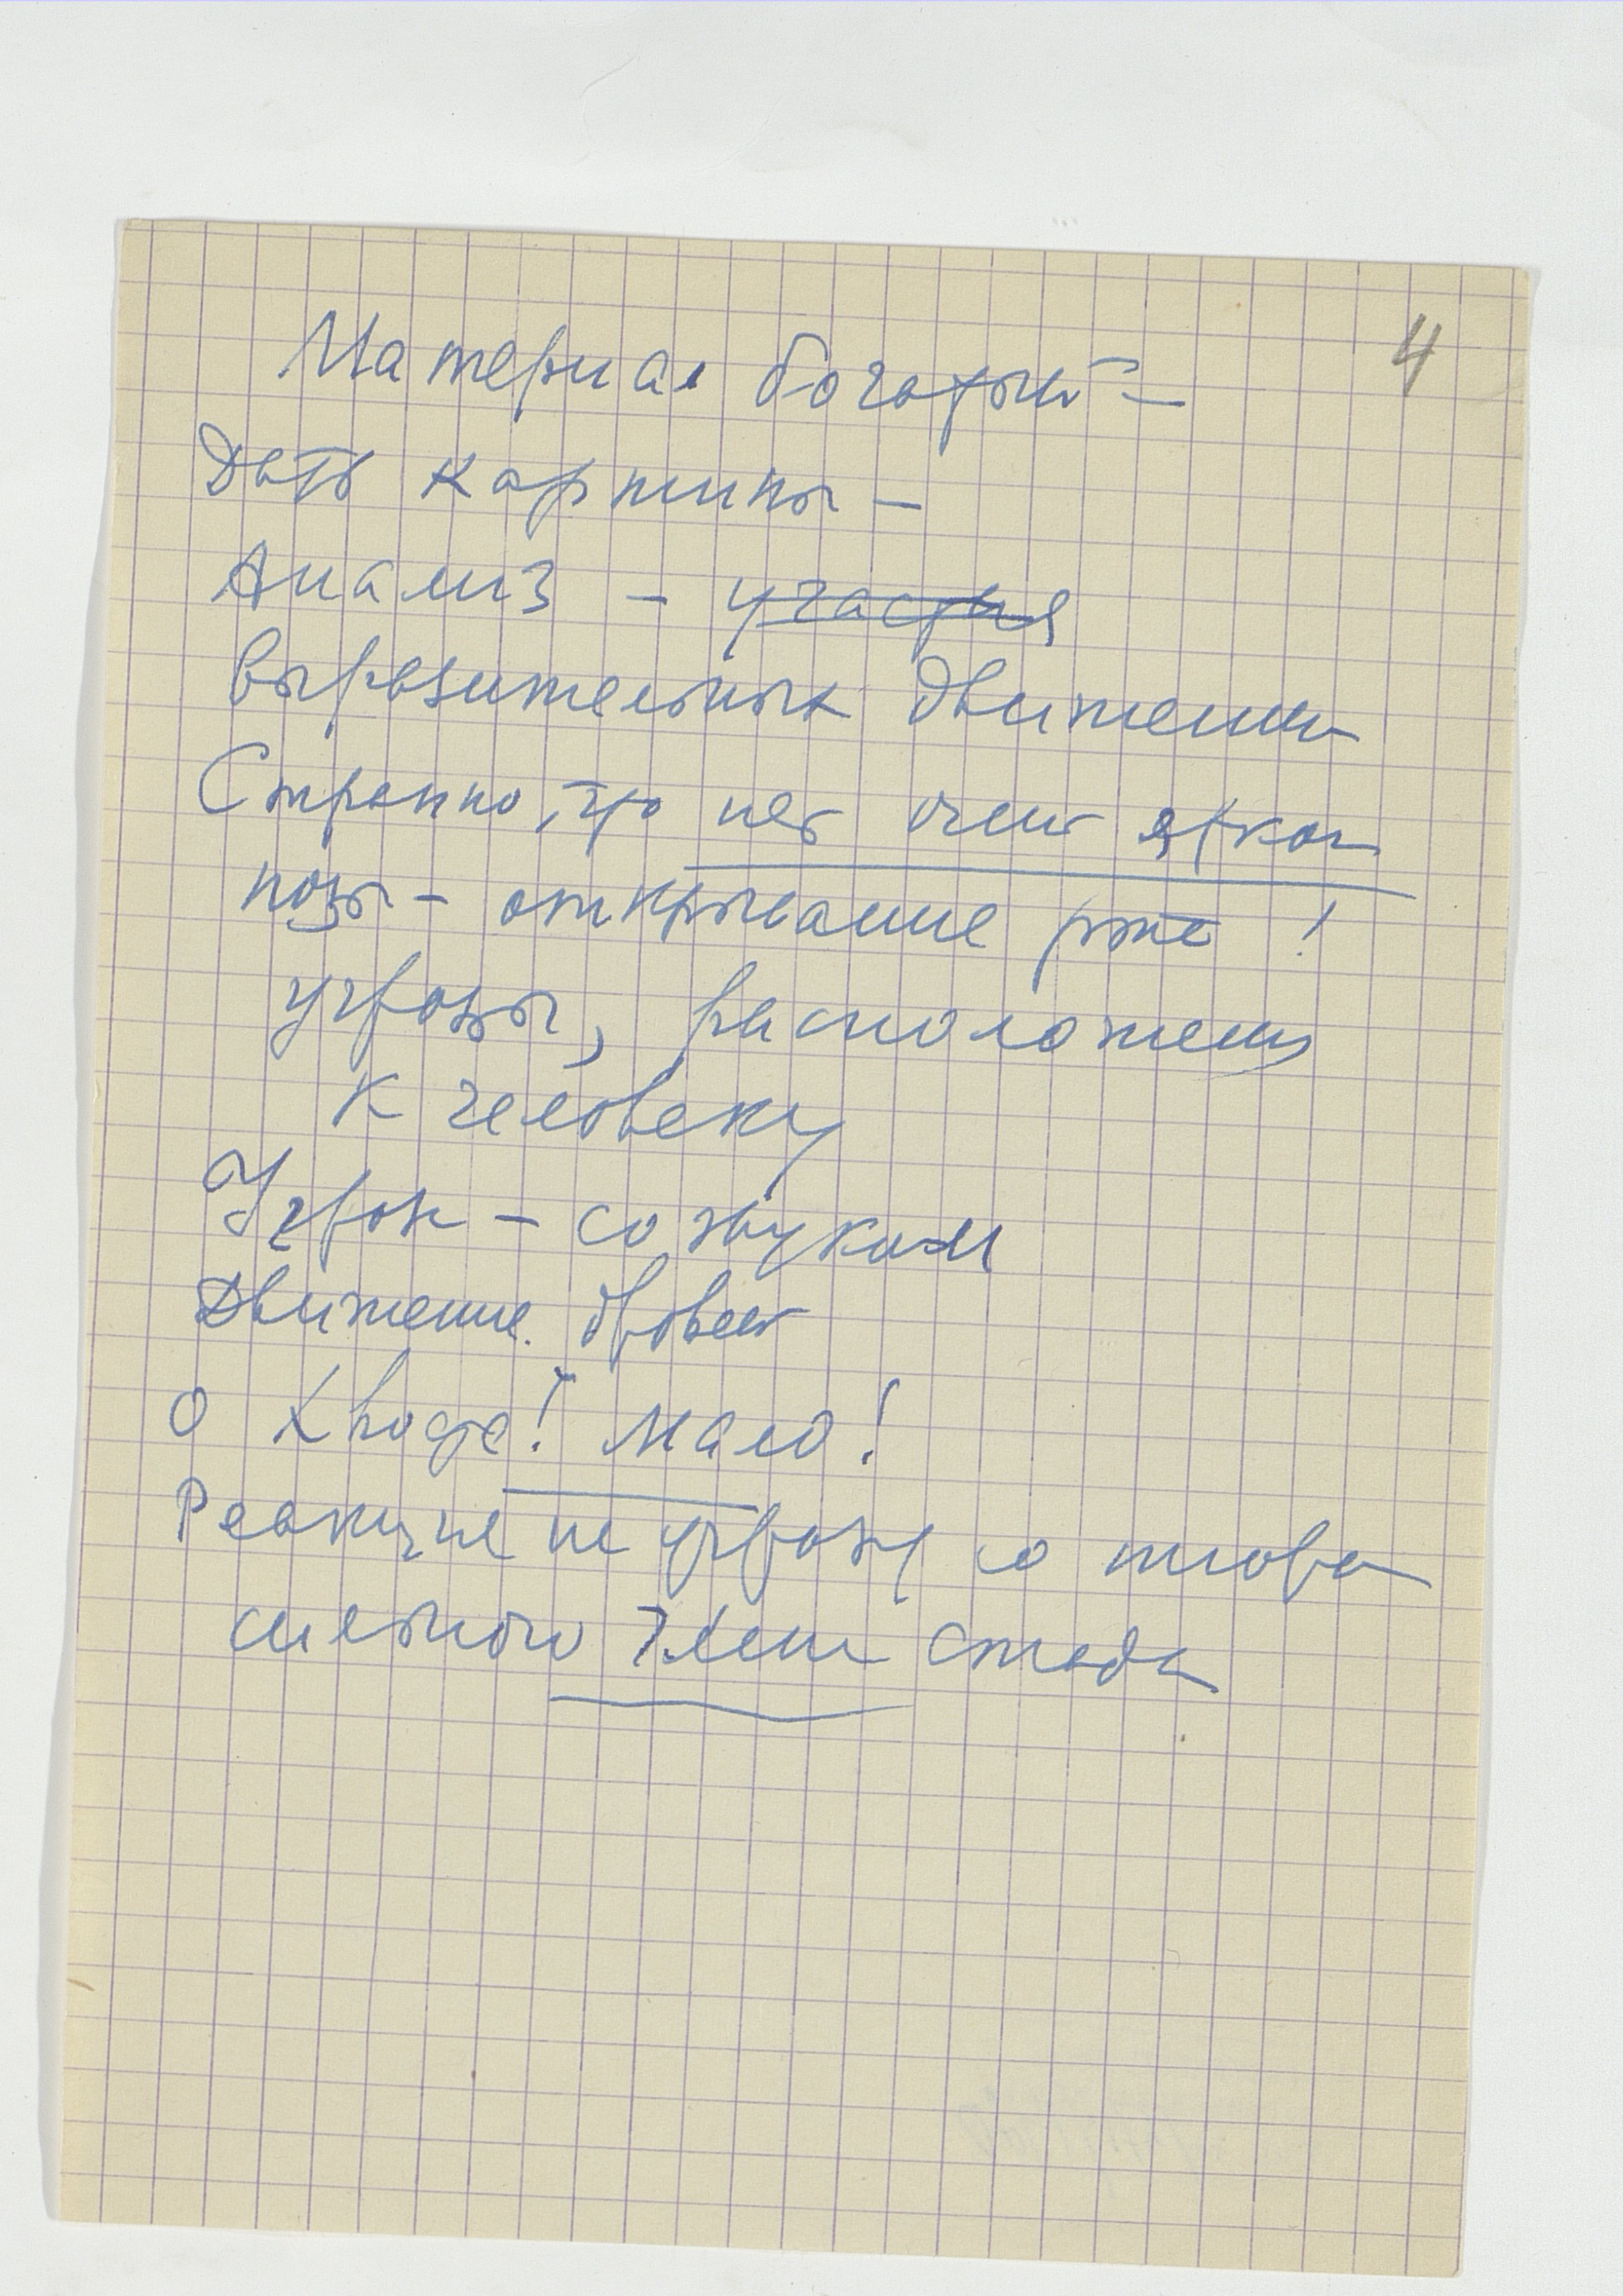 4
Материал богатый —
Дать картины —
Анализ — участия
выразительных движений
Странно, что нет очень яркой
позы — открывание рта !
угрозы, расположения
к человеку
Угроза — со звуками
Движение бровей
О хвосте! Мало!
Реакция на угрозу со стороны
члена стада